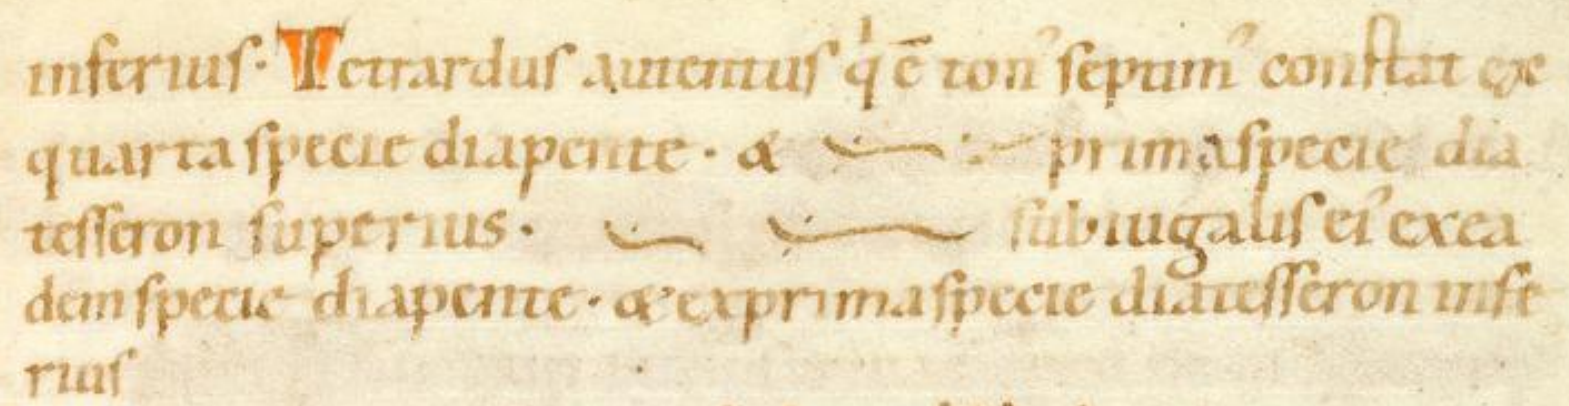 inferius· Tetrardus autentus q̇ ē ton᾿ septim᾿ constat ex
quarta specie diapente· & prima specie dia
tesseron superius· subiugalis ei᾿ ex ea
dem specie diapente· & ex prima specie diatesseron infe
rius